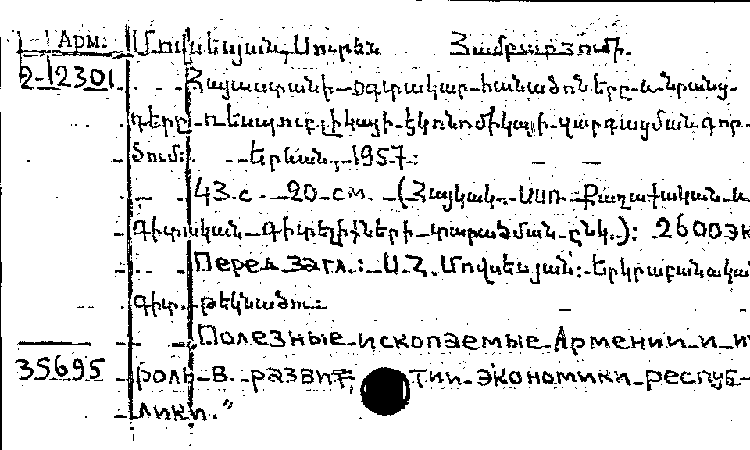 Арм. Մովսեսյան, Սուրեն Համբարձում.
2-12301 Հայաստանի օգտակար հանածոները և նրանց
դերը ռեսպուբլիկայի էկոնոմիկայի զարգացման գոր-
ծում: Երևան, 1957:
43 с. 20 см. (Հայկակ. ՍՍՌ Քաղաքական և
գիտական գիտելիքների տարածման ընկ.): 2600 эк
Перед загл.: Ս.Հ. Մովսեսյան: երկրաբանական
գիտ. թեկնածու:
Полезные ископаемые Армении и и
35695 роль в развит тии экономики респуб-
лики."